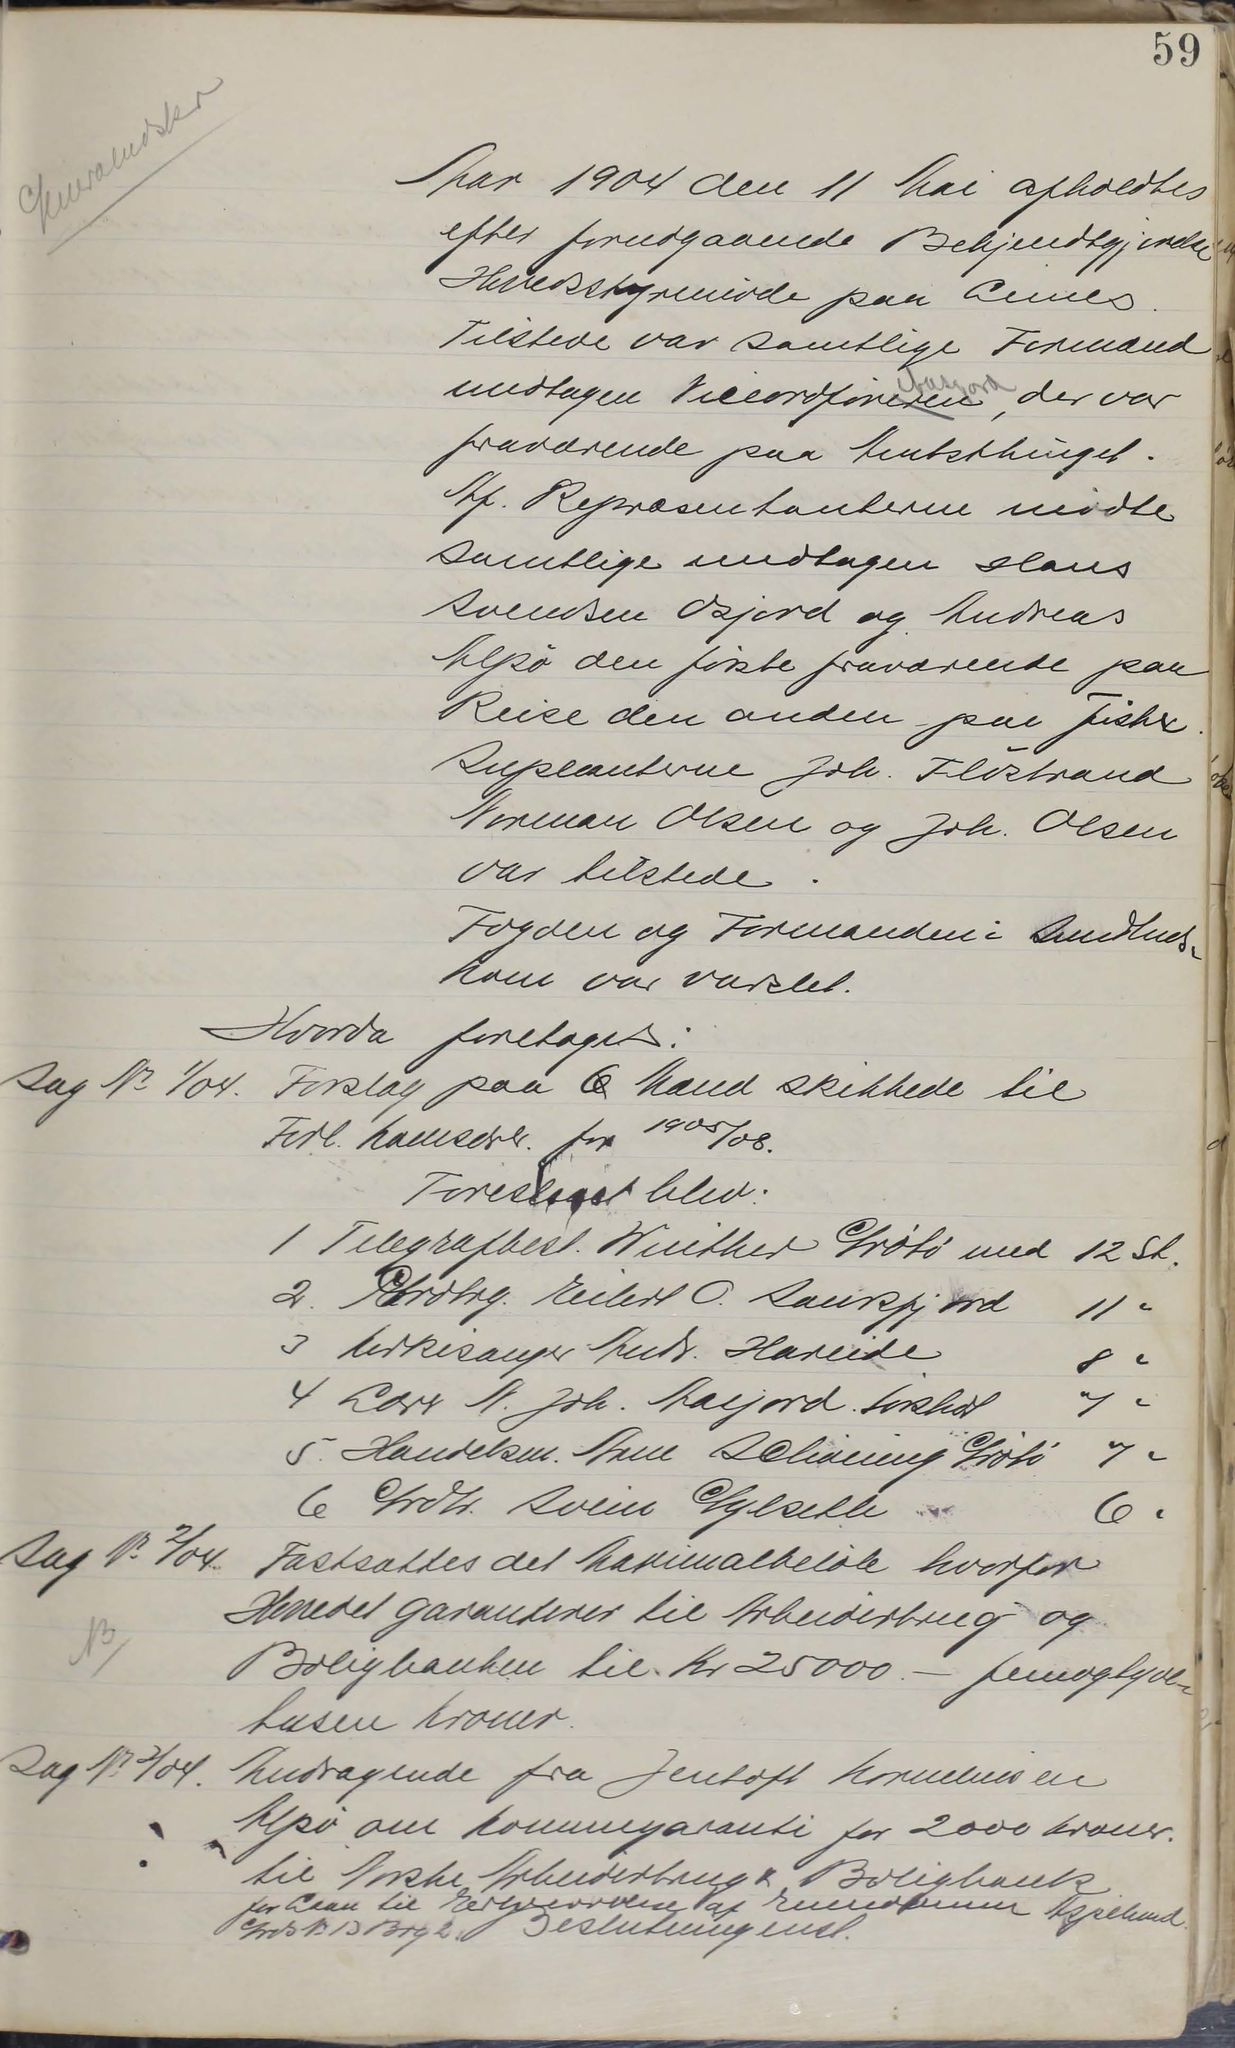 59
Aar 1904 den 11 Mai afholdtes
efter forudgaaende Bekjendtgjørelse
Herredsstyremøde paa Leines.
Tilstede var samtlige Formænd
undtagen Viceordføreren, der var
fraværende paa Amtsthinget.
Af Repræsentanterne mødte
samtlige undtagen Hans
Svendsen Osjord og Andreas
Alpø den første fraværende paa
Reise den anden paa Fiske.
Suplanterne Joh. Fløstrand
Norman Olsen og Joh. Olsen
var tilstede.
Fogden og Formanden i
kom var varslet.
Hvorda foretoges:
Sag No 1/04. Forslag paa 6 Mænd skikkede til
Forl. komsær. for 1905/08.
Foreslaaet blev:
1 Telegrafbest. Winther Grøtø med 12 St.
2. Grdbrg. Eilert O. Laukfjord 11 "
3 Kirkesanger Andr. Hareide 8 "
4 Lærer N. Joh. Aasjord 7 "
5. Handelsm. Arne Schøning Grøtø 7 "
6 Grdbr. Svein Gylseth 6 "
Sag No 2/04. Fastsattes det Maximalbeløb hvorfor
Herredet garanterer til Arbeiderbrug og
NB
Boligbanken til Kr 25000.— femogtyve-
tusen Kroner.
Sag No 3/04. Andragende fra Jentoft Korneliusen
Alpø om Kommugaranti for 2000 Kroner.
til Norske Arbeiderbrug & Boligbank
for Laan til Erhvervelse af Eiendommen Aspelund
Grds No 13 Brg 2. Beslutning enst.